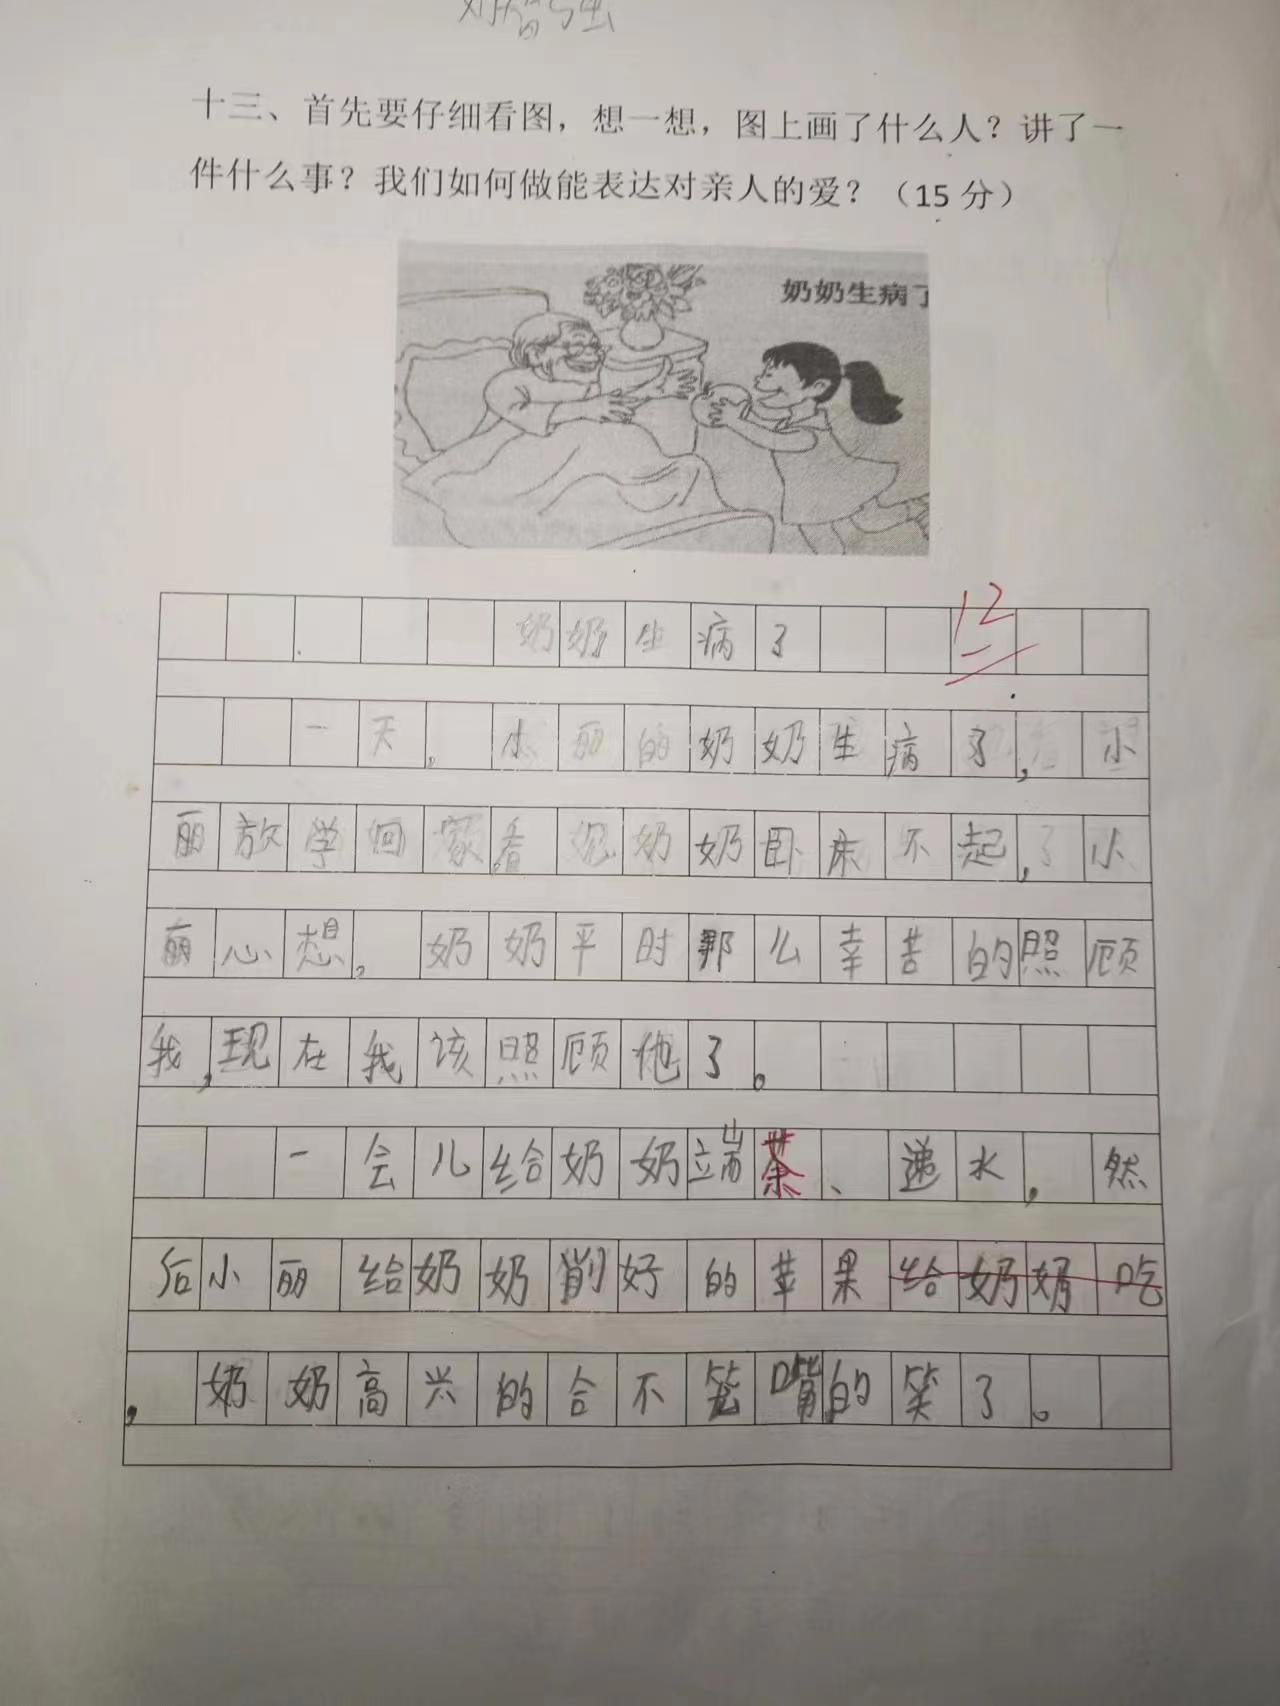 十三、首先要仔细看图，想一想，图上画了什么人？讲了一
件什么事？我们如何做能表达对亲人的爱？（15 分）
奶奶生病了
奶奶生病了
12
一天，小丽的奶奶生病了，小
丽放学回家，看见奶奶卧床不起，了小
丽心想，奶奶平时那么幸苦的照顾
我，现在我该照顾他了。
一会儿给奶奶端茶、递水，然
后小丽给奶奶削好的苹果给奶奶吃
，奶奶高兴的合不笼嘴的笑了。